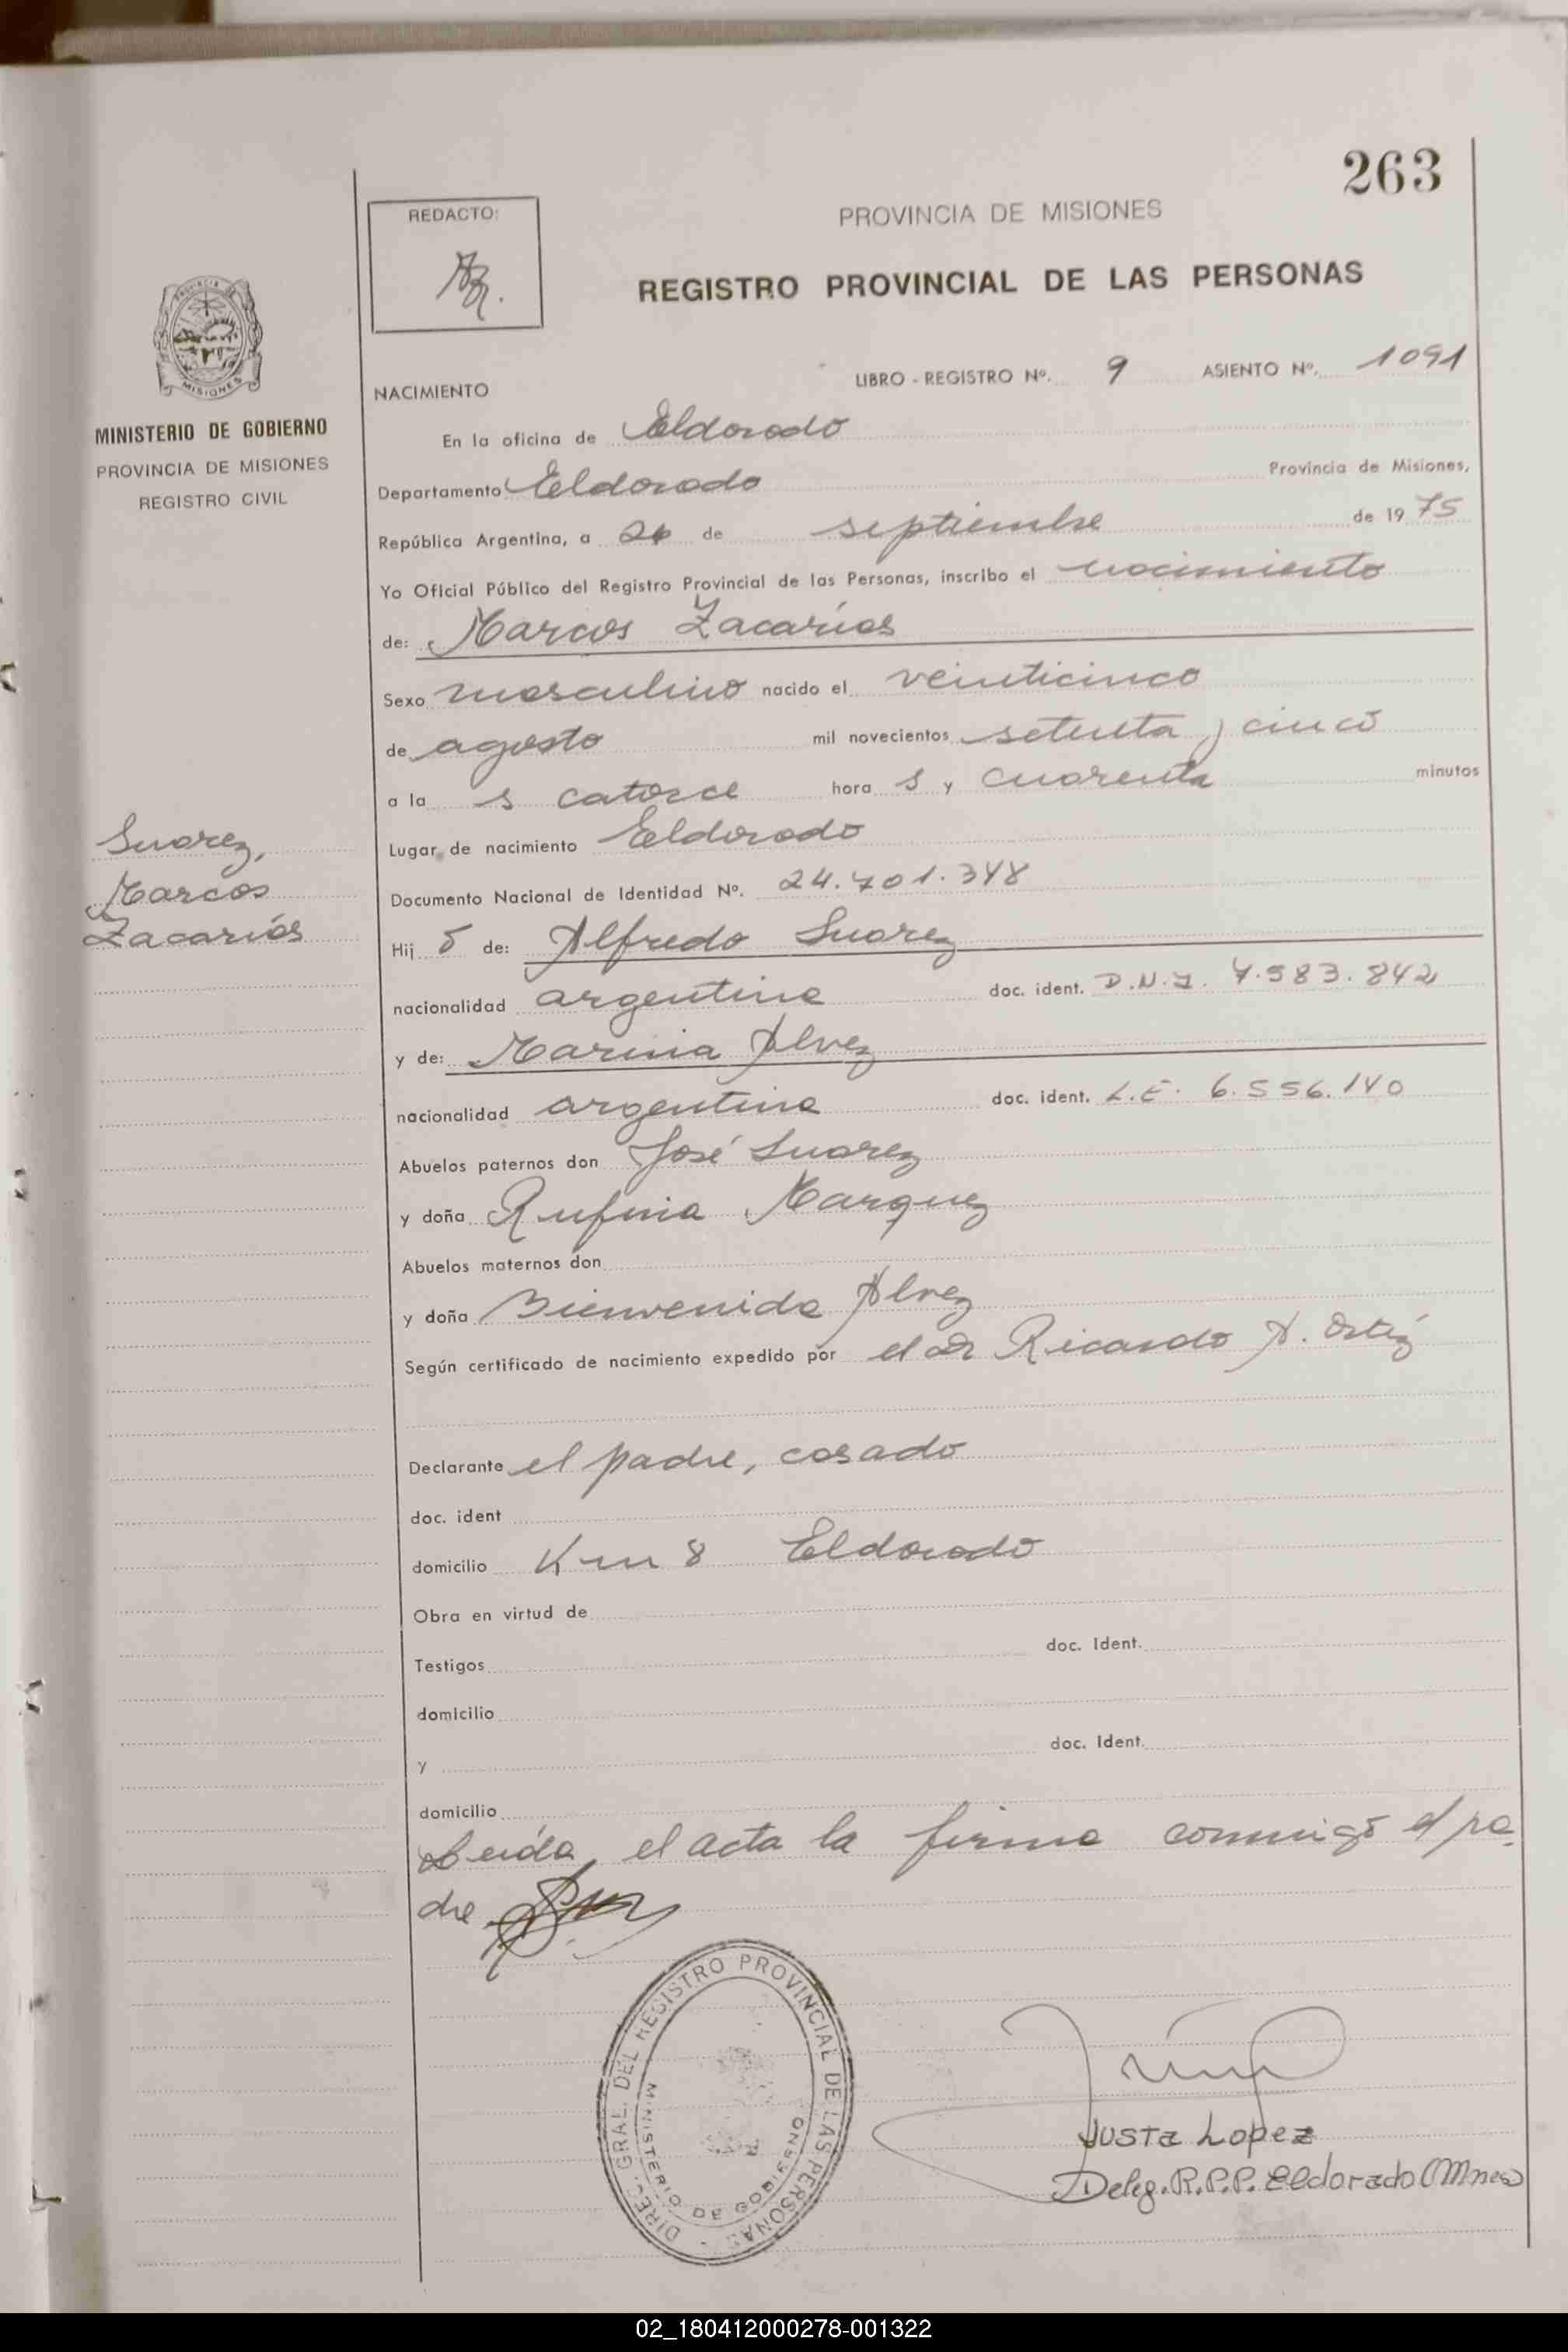 263
REDACTO:
PROVINCIA DE MISIONES
REGISTRO PROVINCIAL DE LAS PERSONAS
MISIONES
MINISTERIO DE GOBIERNO
PROVINCIA DE MISIONES
REGISTRO CIVIL
NACIMIENTO
LIBRO - REGISTRO Nº. 9 ASIENTO Nº. 1091
En la oficina de Eldorado
Departamento Eldorado Provincia de Misiones,
República Argentina, a de septiembre de 1975
Yo Oficial Público del Registro Provincial de las Personas, inscribo el nacimiento
de: Marcos Zacarías
Sexo masculino nacido el veinticinco
de agosto mil novecientos setenta y cinco
a la s catorce hora s y cuarenta minutos
Suarez,
Marcos
Zacarías
Lugar de nacimiento Eldorado
Documento Nacional de Identidad Nº. 24.701.348
Hij o de: Alfredo Suarez
nacionalidad argentina doc. ident. D.N.I. 7.583.842
y de: Marina Alvez
nacionalidad argentina doc. ident. L.E. 6.556.140
Abuelos paternos don José Suarez
y doña Rufina Marquez
Abuelos maternos don
y doña Bienvenida Alvez
Según certificado de nacimiento expedido por el Dr Ricardo A. Ortíz
Declarante el padre, casado
doc. ident
domicilio Km 8 Eldorado
Obra en virtud de
Testigos doc. Ident.
domicilio
y doc. Ident.
domicilio
Leída el acta la firma conmigo el pa
dre
DIREC. GRAL. DEL REGISTRO PROVINCIAL DE LAS PERSONAS
MINISTERIO DE GOBIERNO
Justa Lopez
Deleg. R.P.P. Eldorado (Mnes)
02_180412000278-001322